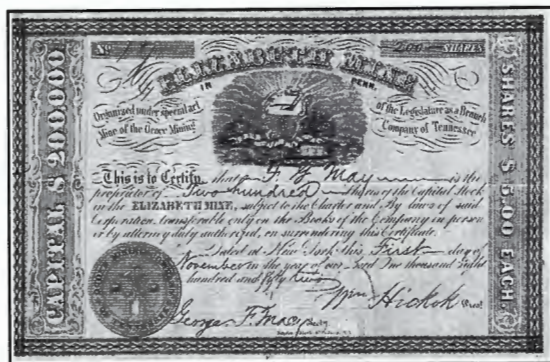 No 17
200 SHARES
ELIZABETH MINE
IN TENN.
Organized under special act of the Legislature as a Branch
Mine of the Ocoee Mining Company of Tennessee
CAPITAL $200,000
SHARES $5.00 EACH.
This is to Certify, that F. Y. May is the
proprietor of Two hundred Shares of the Capital Stock
in the ELIZABETH MINE, subject to the Charter and By laws of said
Corporation, transferable only on the Books of the Company in person
or by attorney duly authorized, on surrendering this Certificate.
Dated at New York this First day of
November in the year of our Lord One thousand eight
hundred and fifty two
Wm Hickok Prest.
George F. May Secty